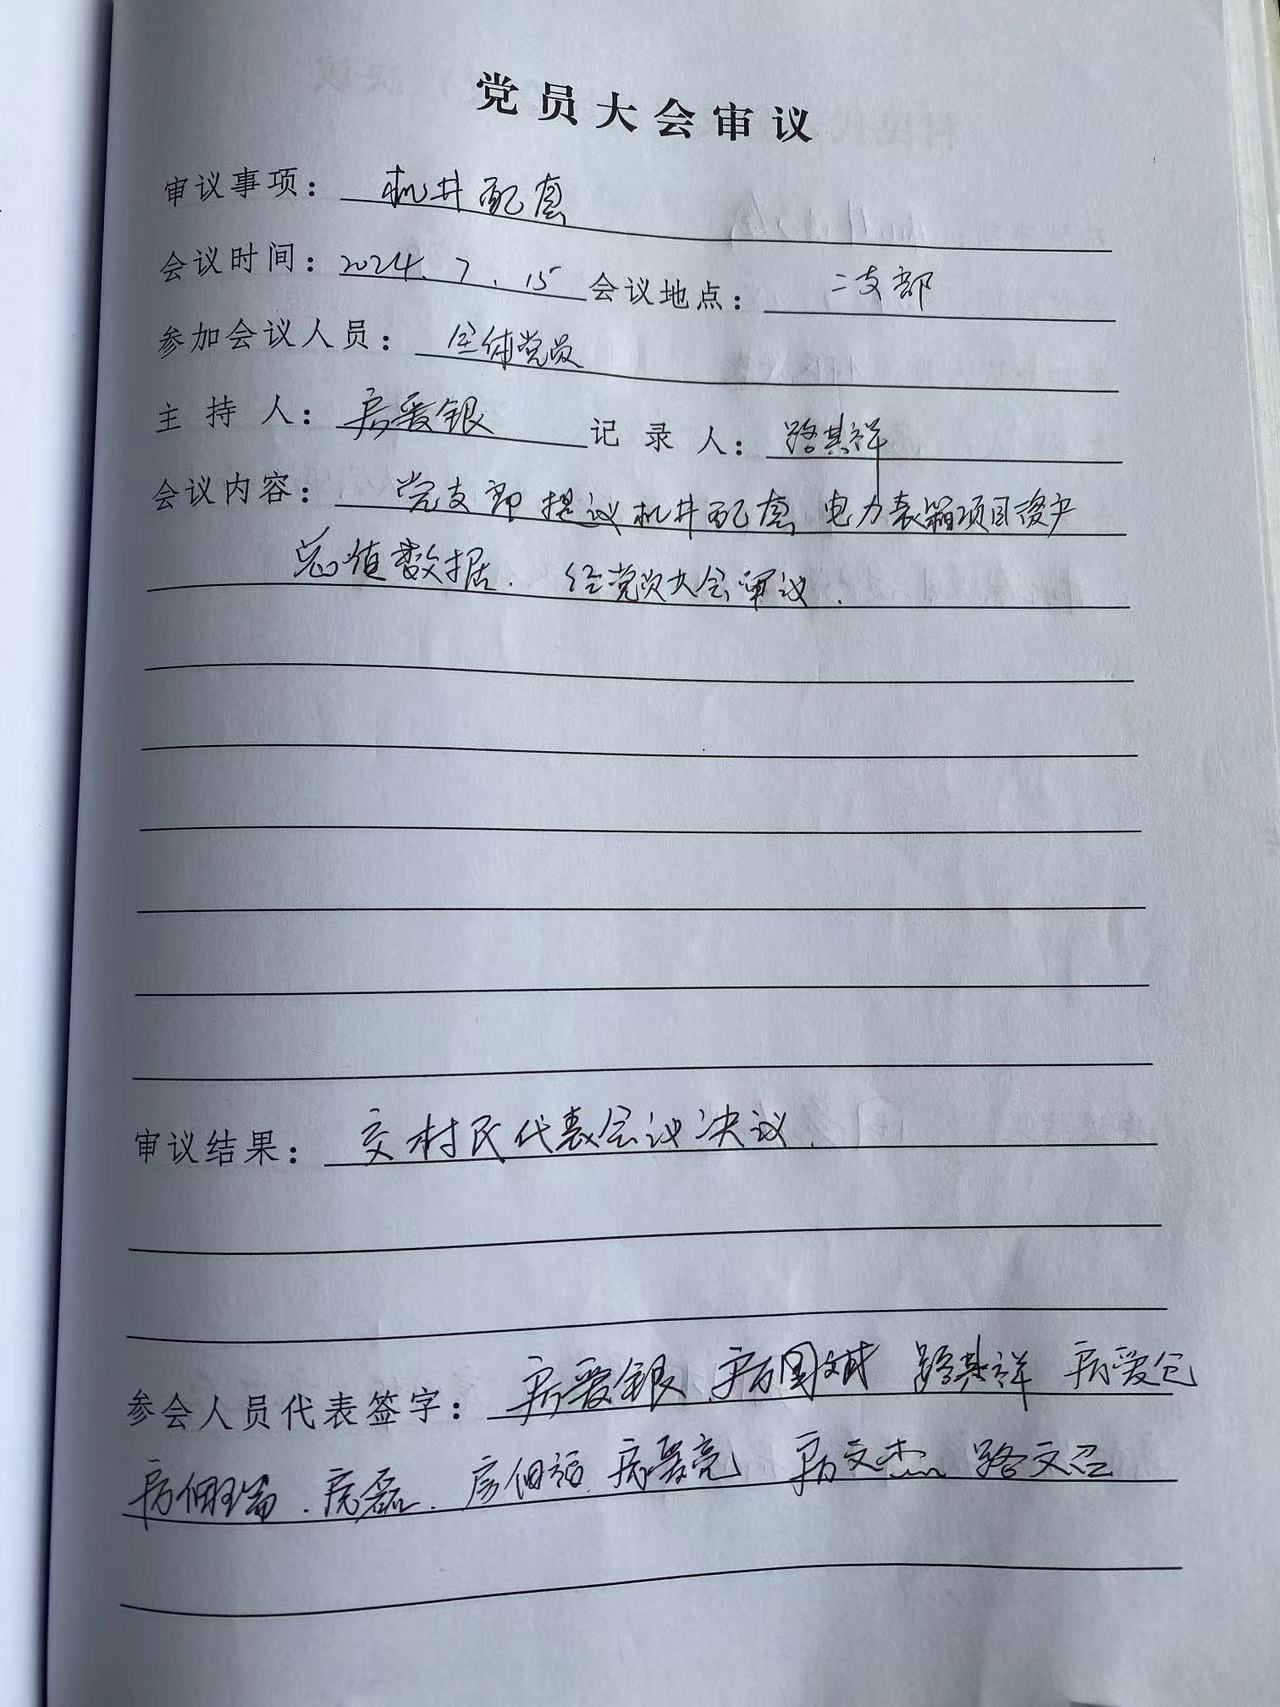 党员大会审议
审议事项：机井配套
会议时间：2024.7.15 会议地点：二支部
参加会议人员：全体党员
主持人：房爱银 记录人：路其祥
会议内容：党支部提议机井配套电力表箱项目资产
总值数据.经党员大会审议.
审议结果：交村民代表会议决议.
参会人员代表签字：房爱银 房国斌 路其祥 房爱仓
房佃瑞.房磊.房佃福 房 亮 房文杰 路文召